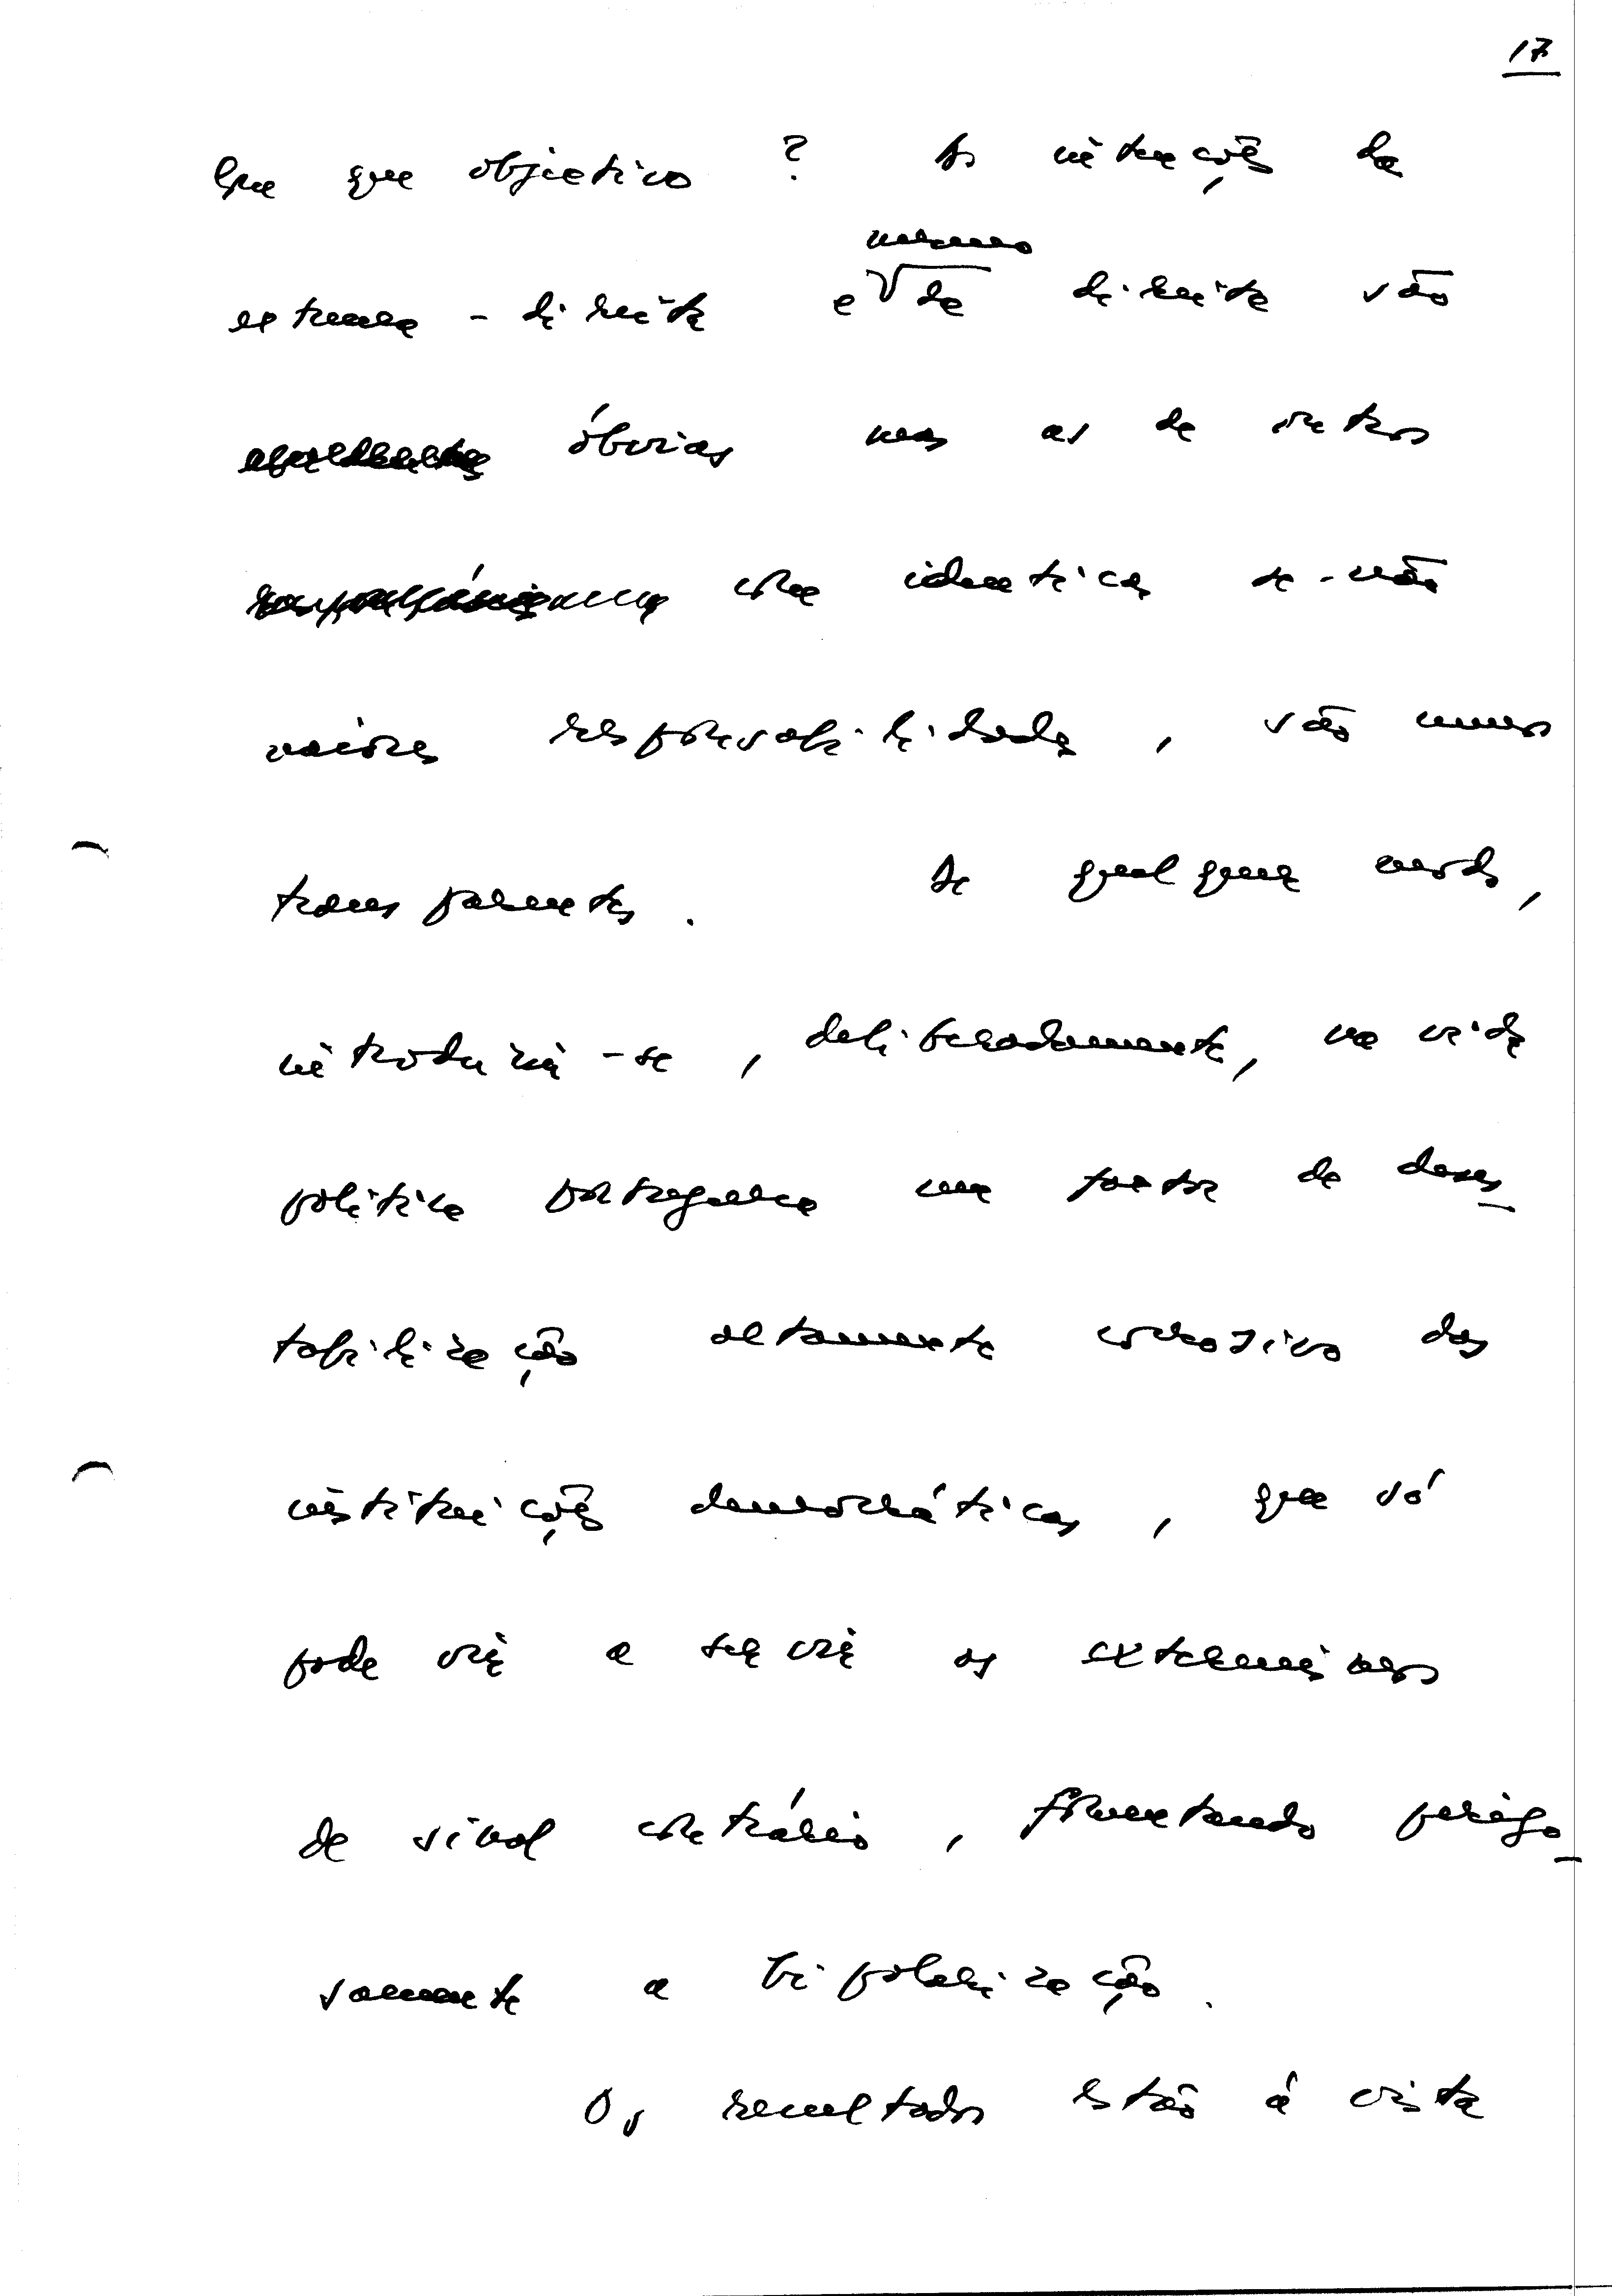 17
Com que objectivo? As intenções da
extrema-direita e mesmo da direita são
óbvias mas as de outros
com idênticas se-não
maiores responsabilidades, são menos
transparentes. De qualquer modo,
introduziu-se, deliberadamente, na vida
política portuguesa um factor de deses-
tabilização altamente corrosivo das
instituições democráticas, que só
pode vir a servir os extremismos
de sinal contrário, fomentando perigo-
samente a bipolarização.
Os resultados estão à vista